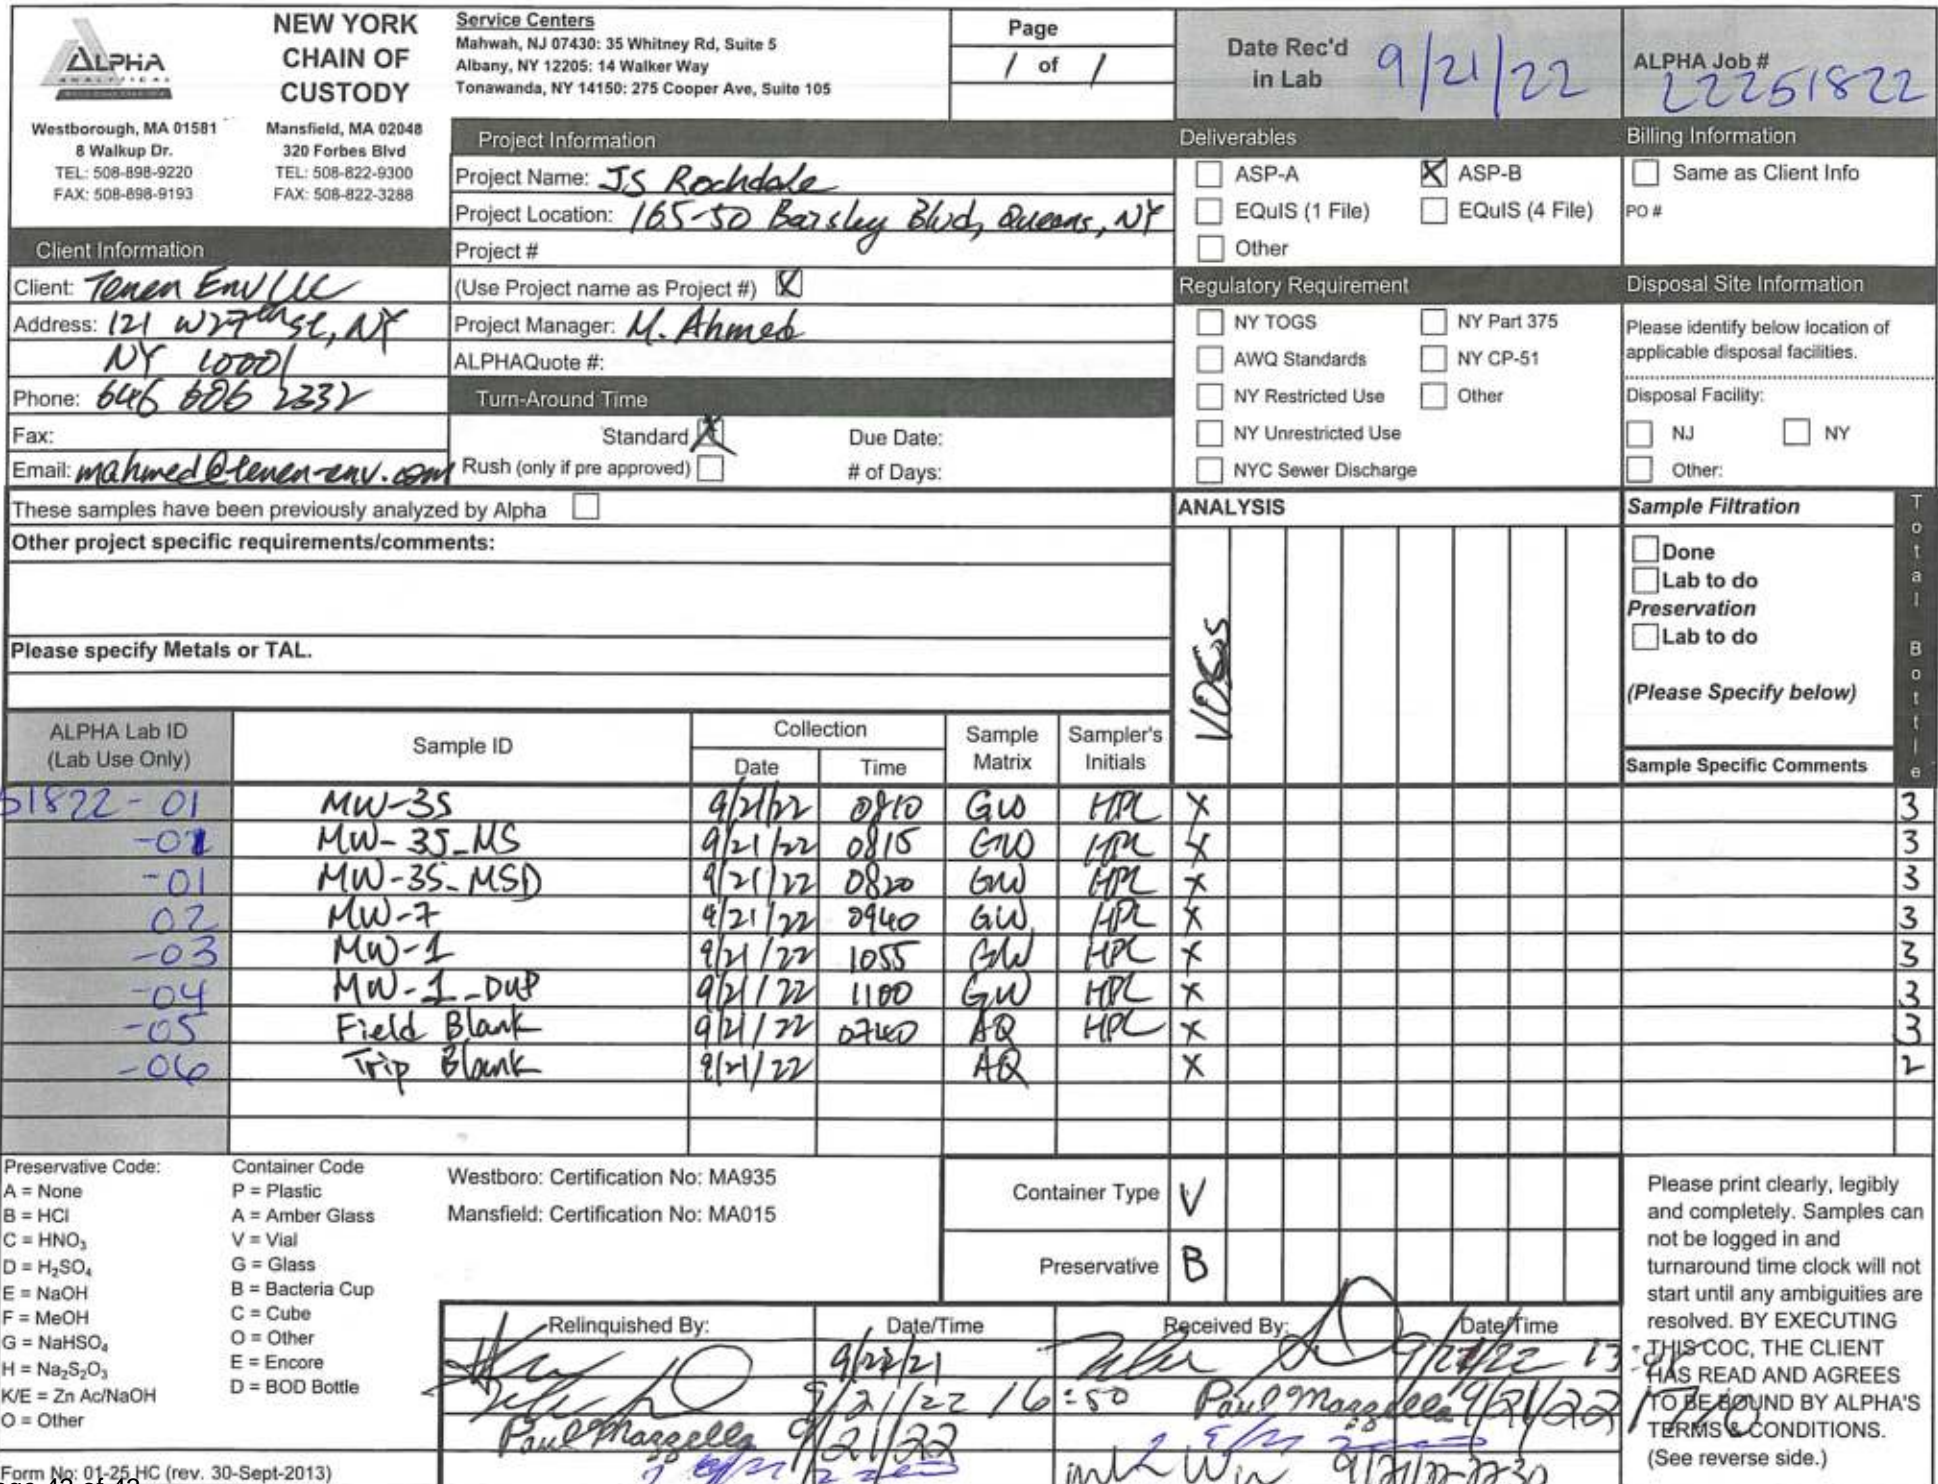 ALPHA
ANALYTICAL
Westborough, MA 01581
8 Walkup Dr.
TEL: 508-898-9220
FAX: 508-898-9193
NEW YORK
CHAIN OF
CUSTODY
Mansfield, MA 02048
320 Forbes Blvd
TEL: 508-822-9300
FAX: 508-822-3288
Service Centers
Mahwah, NJ 07430: 35 Whitney Rd, Suite 5
Albany, NY 12205: 14 Walker Way
Tonawanda, NY 14150: 275 Cooper Ave, Suite 105
Page
1 of 1
Date Rec'd
in Lab 9/21/22
ALPHA Job #
L2251822
Client Information
Client: Tenen Env LLC
Address: 121 W27th St, NY
NY 10001
Phone: 646 606 2332
Fax:
Email: mahmed@tenen-env.com
Project Information
Project Name: JS Rochdale
Project Location: 165-50 Baisley Blvd, Queens, NY
Project #
(Use Project name as Project #) X
Project Manager: M. Ahmed
ALPHAQuote #:
Turn-Around Time
Standard X Due Date:
Rush (only if pre approved) # of Days:
Deliverables
ASP-A X ASP-B
EQuIS (1 File) EQuIS (4 File)
Other
Regulatory Requirement
NY TOGS NY Part 375
AWQ Standards NY CP-51
NY Restricted Use Other
NY Unrestricted Use
NYC Sewer Discharge
Billing Information
Same as Client Info
PO #
Disposal Site Information
Please identify below location of
applicable disposal facilities.
Disposal Facility:
NJ NY
Other:
These samples have been previously analyzed by Alpha
Other project specific requirements/comments:
Please specify Metals or TAL.
ANALYSIS
VOCs
Sample Filtration
Done
Lab to do
Preservation
Lab to do
(Please Specify below)
Sample Specific Comments
Total Bottle
ALPHA Lab ID
(Lab Use Only)
Sample ID
Collection
Date Time
Sample
Matrix
Sampler's
Initials
51822-01 MW-3S 9/21/22 0810 GW HPL X 3
-01 MW-3S_MS 9/21/22 0815 GW HPL X 3
-01 MW-3S_MSD 9/21/22 0820 GW HPL X 3
02 MW-7 9/21/22 0940 GW HPL X 3
-03 MW-1 9/21/22 1055 GW HPL X 3
-04 MW-1_DUP 9/21/22 1100 GW HPL X 3
-05 Field Blank 9/21/22 0740 AQ HPL X 3
-06 Trip Blank 9/21/22 AQ X 2
Preservative Code:
A = None
B = HCl
C = HNO3
D = H2SO4
E = NaOH
F = MeOH
G = NaHSO4
H = Na2S2O3
K/E = Zn Ac/NaOH
O = Other
Container Code
P = Plastic
A = Amber Glass
V = Vial
G = Glass
B = Bacteria Cup
C = Cube
O = Other
E = Encore
D = BOD Bottle
Westboro: Certification No: MA935
Mansfield: Certification No: MA015
Container Type V
Preservative B
Relinquished By: Date/Time Received By: Date/Time
9/21/22 16:50 Paul Mazzella 9/21/22 1710
Paul Mazzella 9/21/22
Please print clearly, legibly
and completely. Samples can
not be logged in and
turnaround time clock will not
start until any ambiguities are
resolved. BY EXECUTING
THIS COC, THE CLIENT
HAS READ AND AGREES
TO BE BOUND BY ALPHA'S
TERMS & CONDITIONS.
(See reverse side.)
Form No: 01-25 HC (rev. 30-Sept-2013)